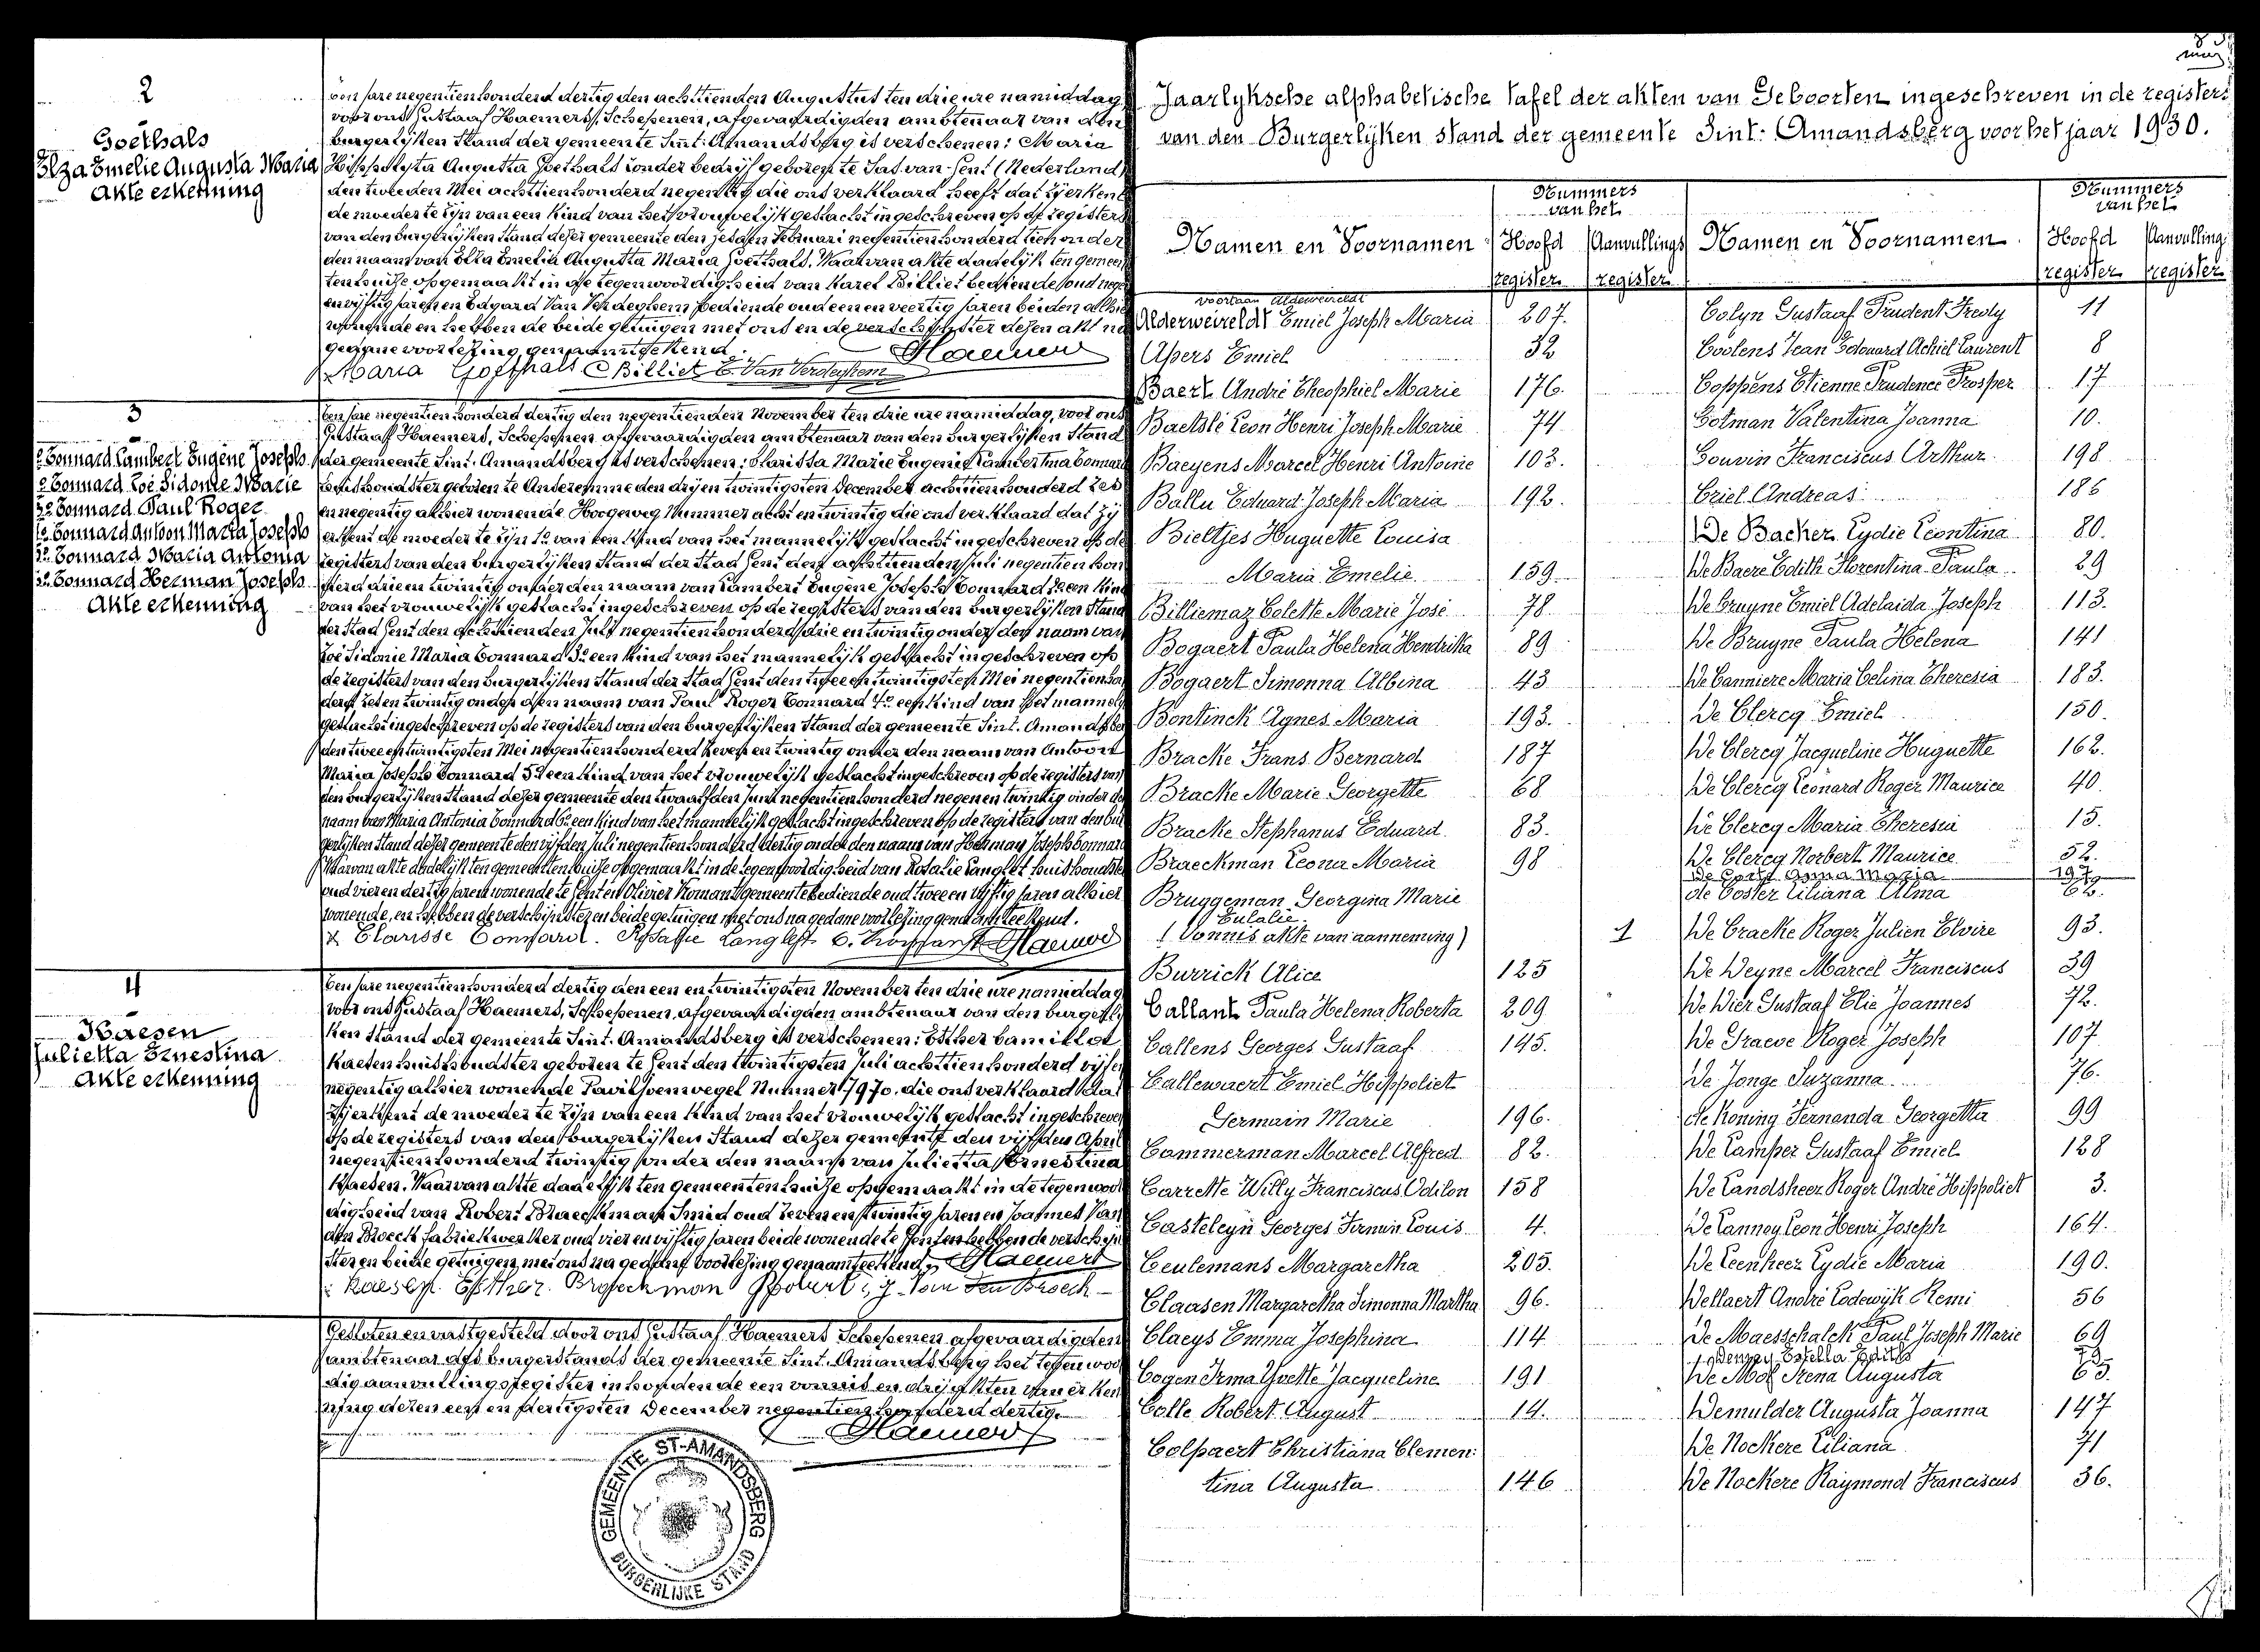 2
Goethals
Elza Emelie Augusta Maria
Akte erkenning
een jare negentienhonderd dertig den achttienden Augustus ten drie ure namiddag
voor ons Gustaaf Haemers, Schepenen, afgevaardigden ambtenaar van den
burgerlijken Stand der gemeente Sint-Amandsberg is verschenen: Maria
Hippolyta Augusta Goethals zonder bedrijf geboren te Sas-van-Gent (Nederland)
den tweeden Mei achttienhonderd negentig die ons verklaard heeft dat zij erkent
de moeder te zijn van een kind van het vrouwelijk geslacht ingeschreven op de registers
van den burgerlijken Stand dezer gemeente den Februari negentienhonderd tien onder
den naam van Elza Emelia Augusta Maria Goethals. Waarvan akte dadelijk ten gemeen
tenhuize opgemaakt in de tegenwoordigheid van Karel Billiet bediende oud
en vijftig jaren en Edgard Van Verdeghem bediende oud een en veertig jaren beiden alhier
wonende en hebben de beide getuigen met ons en de verschijnster dezen akt na
gedane voorlezing genaamteekend.
Maria Goethals C Billiet E. Van Verdeghem Haemers
3
1º Connard Lambert Eugène Joseph
2º Connard Zoé Sidonie Marie
3º Connard Paul Roger
4º Connard Antoon Maria Joseph
5º Connard Maria Antonia
6º Connard Herman Joseph
Akte erkenning
Ten jare negentienhonderd dertig den negentienden November ten drie ure namiddag, voor ons
Gustaaf Haemers, Schepenen afgevaardigden ambtenaar van den burgerlijken Stand
der gemeente Sint-Amandsberg is verschenen: Clarissa Marie Eugenie Lambertina Connard
huishoudster geboren te Andenne den drij en twintigsten December achttienhonderd zes
en negentig alhier wonende Hoogeweg Nummer acht en twintig die ons verklaard dat zij
erkent de moeder te zijn 1º van een kind van het mannelijk geslacht ingeschreven op de
registers van den burgerlijken Stand der Stad Gent den achttienden Juli negentienhon
derd drie en twintig onder den naam van Lambert Eugène Joseph Connard 2º een kind
van het vrouwelijk geslacht ingeschreven op de registers van den burgerlijken Stand
der Stad Gent den achttienden Juli negentienhonderd drie en twintig onder den naam van
Zoé Sidonie Maria Connard 3º een kind van het mannelijk geslacht ingeschreven op
de registers van den burgerlijken Stand der Stad Gent den twee en twintigsten Mei negentienhon
derd zes en twintig onder den naam van Paul Roger Connard 4º een kind van het mannelijk
geslacht ingeschreven op de registers van den burgerlijken Stand der gemeente Sint-Amandsberg
den twee en twintigsten Mei negentienhonderd zeven en twintig onder den naam van Antoon
Maria Joseph Connard 5º een kind van het vrouwelijk geslacht ingeschreven op de registers van
den burgerlijken Stand dezer gemeente den twaalfden Juni negentienhonderd negen en twintig onder den
naam van Maria Antonia Connard 6º een kind van het mannelijk geslacht ingeschreven op de registers van den bur
gerlijken Stand dezer gemeente den vijfden Juli negentienhonderd dertig onder den naam van Herman Joseph Connard
Waarvan akte dadelijk ten gemeentenhuize opgemaakt in de tegenwoordigheid van Rosalie Langlet huishoudster
oud vier en dertig jaren wonende te Gent en Olivier Komans gemeentebediende oud twee en vijftig jaren alhier
wonende, en hebben de verschijnster en beide getuigen met ons na gedane voorlezing genaamteekend.
Clarisse Connard. Rosalie Langlet O. Komans Haemers
4
Kaesen
Julietta Ernestina
Akte erkenning
Ten jare negentienhonderd dertig den een en twintigsten November ten drie ure namiddag
voor ons Gustaaf Haemers, Schepenen, afgevaardigden ambtenaar van den burgerlij
ken Stand der gemeente Sint-Amandsberg is verschenen: Esther Camilla
Kaesen huishoudster geboren te Gent den twintigsten Juli achttienhonderd vijf en
negentig alhier wonende Paviljoenwegel Nummer 7970. die ons verklaard dat
zij erkent de moeder te zijn van een kind van het vrouwelijk geslacht ingeschreven
op de registers van den burgerlijken Stand dezer gemeente den vijfden April
negentienhonderd twintig onder den naam van Julietta Ernestina
Kaesen. Waarvan akte dadelijk ten gemeentenhuize opgemaakt in de tegenwoor
digheid van Robert Braeckman Smid oud zeven en twintig jaren en Joannes Van
den Broeck fabriekwerker oud vier en vijftig jaren beide wonende te Gent en hebben de verschijn
ster en beide getuigen met ons na gedane voorlezing genaamteekend. Haemers
Kaesen Esther. Braeckman Robert, J. Van den Broeck
Gesloten en vastgesteld door ons Gustaaf Haemers Schepenen afgevaardigden
ambtenaar des burgerstands der gemeente Sint-Amandsberg het tegenwoor
dig aanvullingsregister inhoudende een vonnis en drij akten van erken
ning dezen een en dertigsten December negentienhonderd dertig.
Haemers
GEMEENTE ST-AMANDSBERG
BURGERLIJKE STAND
Jaarlyksche alphabetische tafel der akten van Geboorten ingeschreven in de registers
van den Burgerlyken stand der gemeente Sint-Amandsberg voor het jaar 1930.
Namen en Voornamen
Nummers
van het
Hoofd register
Aanvullings register
Namen en Voornamen
Nummers
van het
Hoofd register
Aanvulling register
voortaan Alderweireldt
Alderweireldt Emiel Joseph Maria 207.
Apers Emiel 32
Baert André Theophiel Marie 176.
Baetslé Leon Henri Joseph Marie 74
Baeyens Marcel Henri Antoine 103.
Ballu Eduard Joseph Maria 192.
Bieltjes Huguette Louisa
Maria Emelie 159
Billiemaz Colette Marie José 78
Bogaert Paula Helena Hendrika 89
Bogaert Simonna Albina 43
Bontinck Agnes Maria 193.
Bracke Frans Bernard 187
Bracke Marie Georgette 68
Bracke Stephanus Eduard 83.
Braeckman Leona Maria 98
Bruggeman Georgina Marie
Eulalie
(Vonnis akte van aanneming) 1
Burrick Alice 125
Callant Paula Helena Roberta 209
Callens Georges Gustaaf 145.
Callewaert Emiel Hippoliet
Germain Marie 196.
Cammerman Marcel Alfred 82.
Carrette Willy Franciscus Odilon 158
Casteleyn Georges Firmin Louis 4.
Ceulemans Margaretha 205.
Claasen Margaretha Simonna Martha 96.
Claeys Emma Josephina 114
Cogen Irma Yvette Jacqueline 191
Colle Robert August 14.
Colpaert Christiana Clemen:
tina Augusta 146
Colyn Gustaaf Prudent Fredy 11
Coolens Jean Edouard Achiel Laurent 8
Coppens Etienne Prudence Prosper 17
Cotman Valentina Joanna 10.
Couvin Franciscus Arthur 198
Criel Andreas 186
De Backer Lydie Leontina 80.
De Baere Edith Florentina Paula 29
De Bruyne Emiel Adelaida Joseph 113.
De Bruyne Paula Helena 141
De Canniere Maria Celina Theresia 183.
De Clercq Emiel 150.
De Clercq Jacqueline Huguette 162.
De Clercq Leonard Roger Maurice 40.
De Clercq Maria Theresia 15.
De Clercq Norbert Maurice 52.
De Corte Anna Maria 197
de Coster Liliana Alma 62.
De Cracke Roger Julien Elvire 93.
De Deyne Marcel Franciscus 39
De Dier Gustaaf Elie Joannes 72.
De Graeve Roger Joseph 107
De Jonge Suzanna 76.
de Koning Fernanda Georgetta 99
De Lamper Gustaaf Emiel 128
De Landsheer Roger André Hippoliet 3.
De Lannoy Leon Henri Joseph 164.
De Leenheer Lydie Maria 190.
Dellaert André Lodewyk Remi 56
De Maesschalck Paul Joseph Marie 69
De Mol Irena Augusta 65.
Demulder Augusta Joanna 147
De Nockere Liliana 71
De Nockere Raymond Franciscus 36.